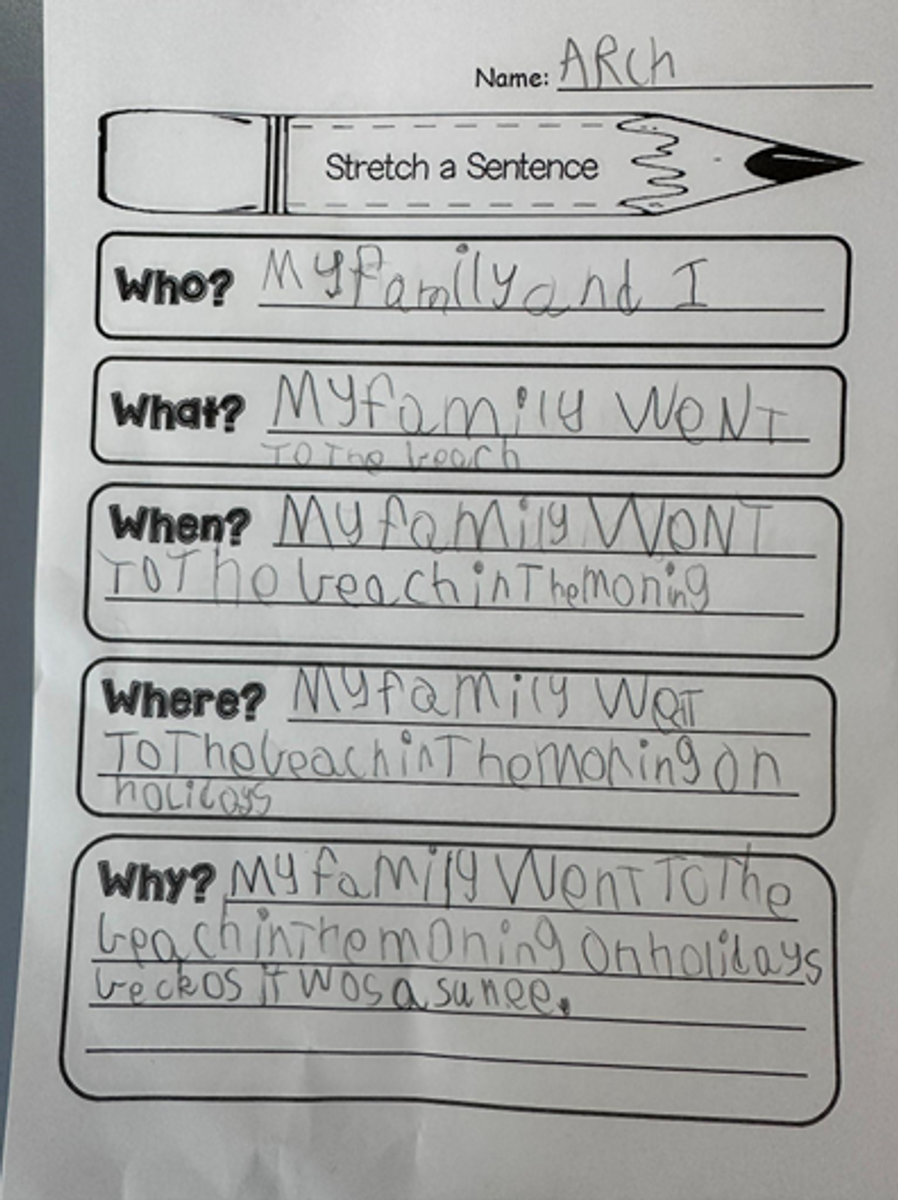 Name: ARch
Stretch a Sentence
Who? My family and I
What? My family WeNT
TO The beach
When? My family WeNT
TO The beach in The moning
Where? My family WeT
To The beach in The moning on
holidays
Why? My family WenT To The
beach in The moning on holidays
beckos it wos a sunee.